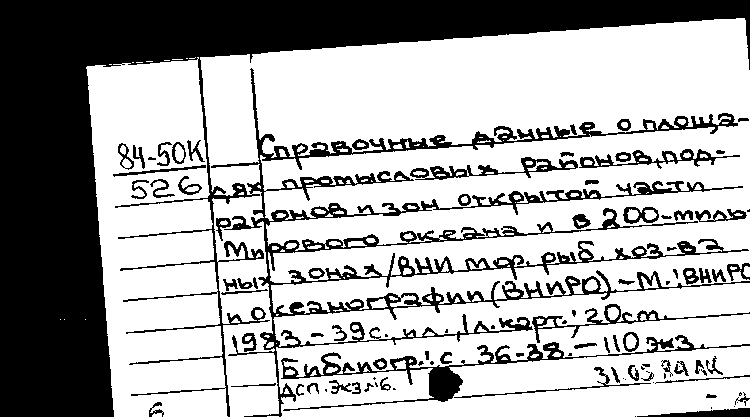 84-50К
526
Справочные данные о площа-
дях промысловых районов, под-
районов и зон открытой части
Мирового океана и в 200-миль-
ных зонах/ВНИ мор. рыб. хоз-ва
и океанографии (ВНИРО).-М.:ВНИРО
1983.-39с., ил., 1л.карт.; 20см.
Библиогр.: с. 36-38.-110 экз.
ДСП. Экз.№6.
31.05.84 АК